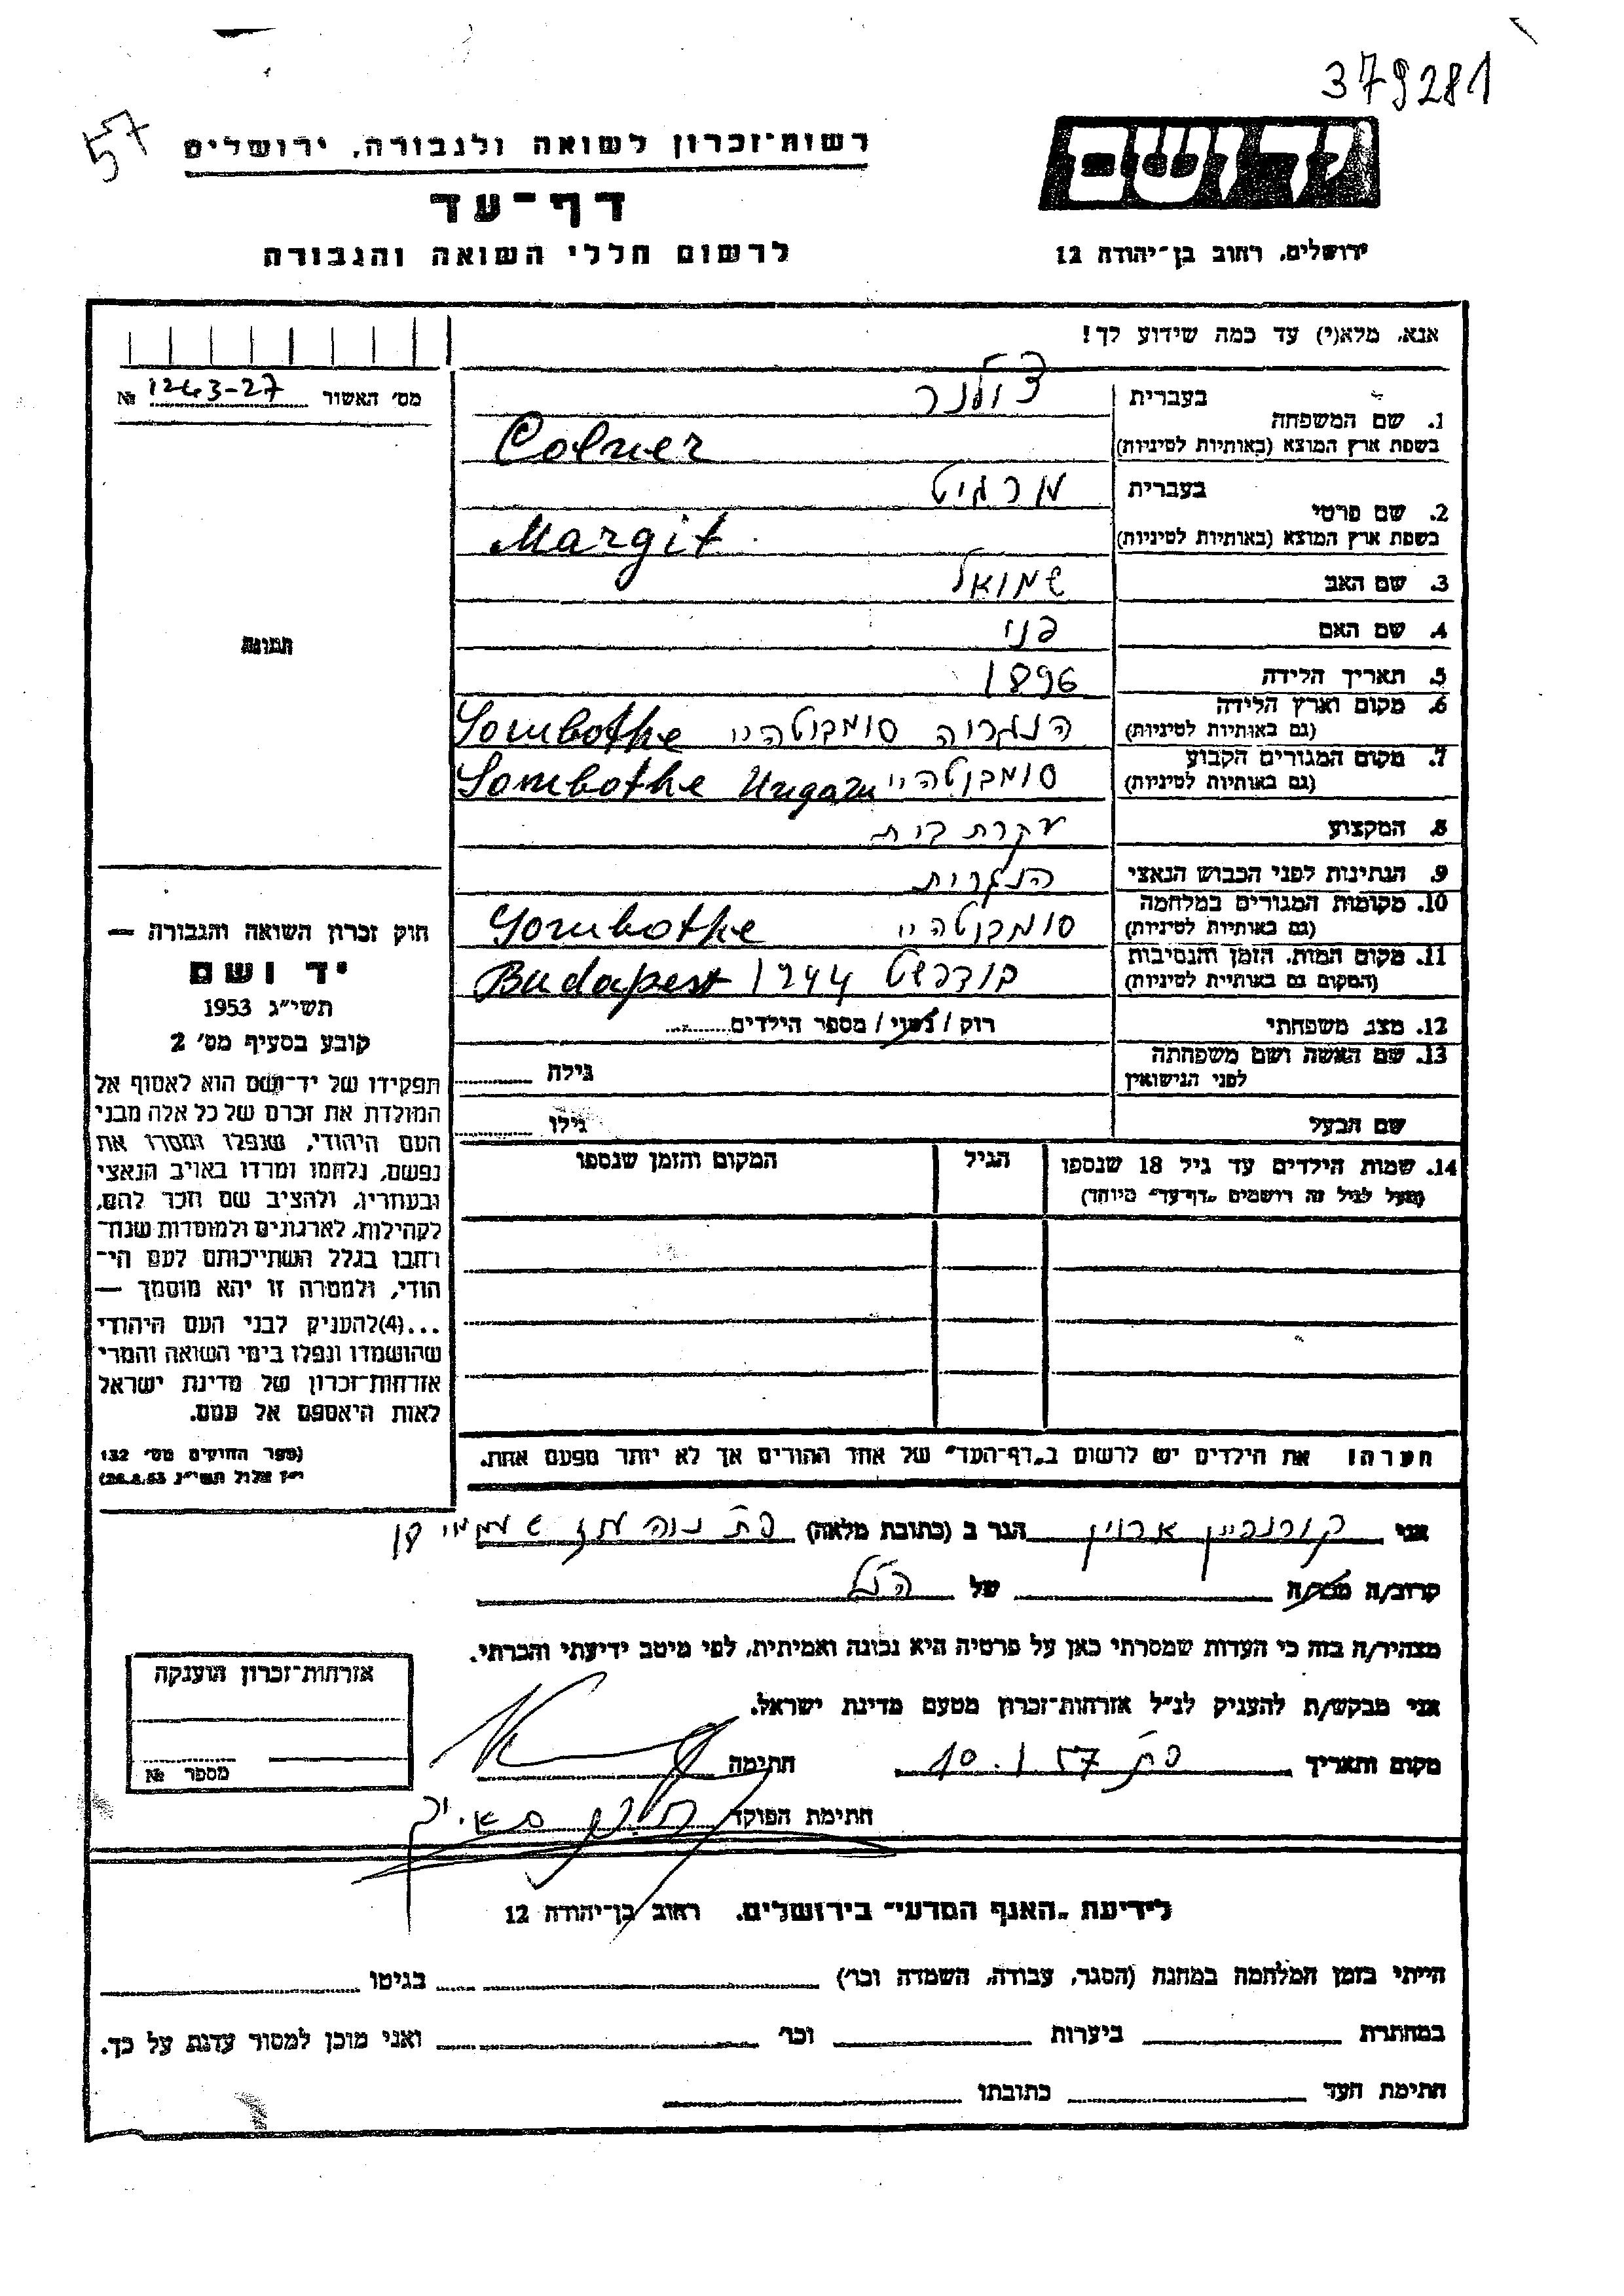 379281
57
רשות־זכרון לשואה ולגבורה, ירושלים
דף־עד
לרשום חללי השואה והגבורה
יד ושם
ירושלים, רחוב בן־יהודה 12
אנא, מלא(י) עד כמה שידוע לך!
מס׳ האשור 1243-27 №
תמונה
1. שם המשפחה
בעברית צולנר
בשפת ארץ המוצא (באותיות לטיניות) Colner
2. שם פרטי
בעברית מרגיט
בשפת ארץ המוצא (באותיות לטיניות) Margit
3. שם האב שמואל
4. שם האם פני
5. תאריך הלידה 1896
6. מקום וארץ הלידה
(גם באותיות לטיניות) הונגריה סומבוטהיי Sombothe
7. מקום המגורים הקבוע
(גם באותיות לטיניות) סומבוטהיי Sombothe Ungarn
8. המקצוע עקרת בית
9. הנתינות לפני הכבוש הנאצי הונגרית
10. מקומות המגורים במלחמה
(גם באותיות לטיניות) סומבוטהיי Sombothe
11. מקום המות, הזמן והנסיבות
(המקום גם באותיות לטיניות) בודפשט 1944 Budapest
12. מצב משפחתי רוק / נשוי / מספר הילדים
13. שם האשה ושם משפחתה
לפני הנישואין
גילה
שם הבעל גילו
14. שמות הילדים עד גיל 18 שנספו
(מעל לגיל זה רושמים „דף־עד״ מיוחד)
הגיל
המקום והזמן שנספו
חוק זכרון השואה והגבורה —
יד ושם
תשי״ג 1953
קובע בסעיף מס׳ 2
תפקידו של יד־ושם הוא לאסוף אל
המולדת את זכרם של כל אלה מבני
העם היהודי, שנפלו ומסרו את
נפשם, נלחמו ומרדו באויב הנאצי
ובעוזריו, ולהציב שם וזכר להם,
לקהילות, לארגונים ולמוסדות שנח־
רבו בגלל השתייכותם לעם הי־
הודי, ולמטרה זו יהא מוסמך —
...(4)להעניק לבני העם היהודי
שהושמדו ונפלו בימי השואה והמרי
אזרחות־זכרון של מדינת ישראל
לאות היאספם אל עמם.
(ספר החוקים מס׳ 132
י״ז אלול תשי״ג 28.8.53)
הערה! את הילדים יש לרשום ב„דף־העד״ של אחד ההורים אך לא יותר מפעם אחת.
אני קורנפיין ארוין הגר ב (כתובת מלאה)
קרוב/ה מכר/ה של הנ״ל
מצהיר/ה בזה כי העדות שמסרתי כאן על פרטיה היא נכונה ואמיתית, לפי מיטב ידיעתי והכרתי.
אני מבקש/ת להעניק לנ״ל אזרחות־זכרון מטעם מדינת ישראל.
מקום ותאריך 10.1.57 חתימה
חתימת הפוקד
אזרחות־זכרון הוענקה
מספר №
לידיעת „האגף המדעי״ בירושלים, רחוב בן־יהודה 12
הייתי בזמן המלחמה במחנה (הסגר, עבודה, השמדה וכו׳) בגיטו
במחתרת ביערות וכו׳ ואני מוכן למסור עדות על כך.
חתימת העד כתובתו